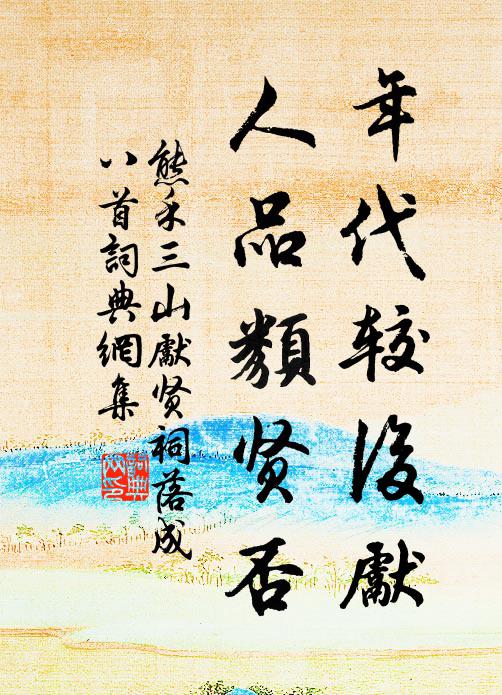 年代较後獻
人品類贤否
熊禾三山獻贤祠落成
八首詞典網集